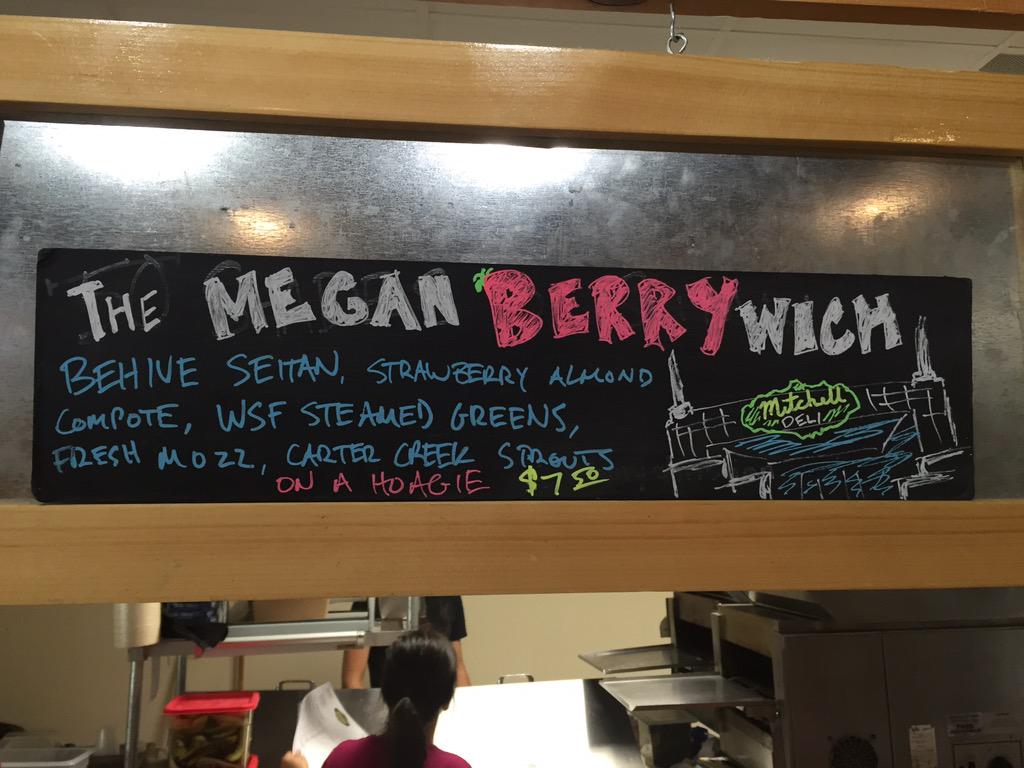 THE MEGAN BERRYWICH
BEHIVE SEITAN, STRAWBERRY ALMOND
COMPOTE, WSF STEAMED GREENS,
FRESH MOZZ, CARTER CREEK SPROUTS
ON A HOAGIE $7.50
Mitchell
DELI